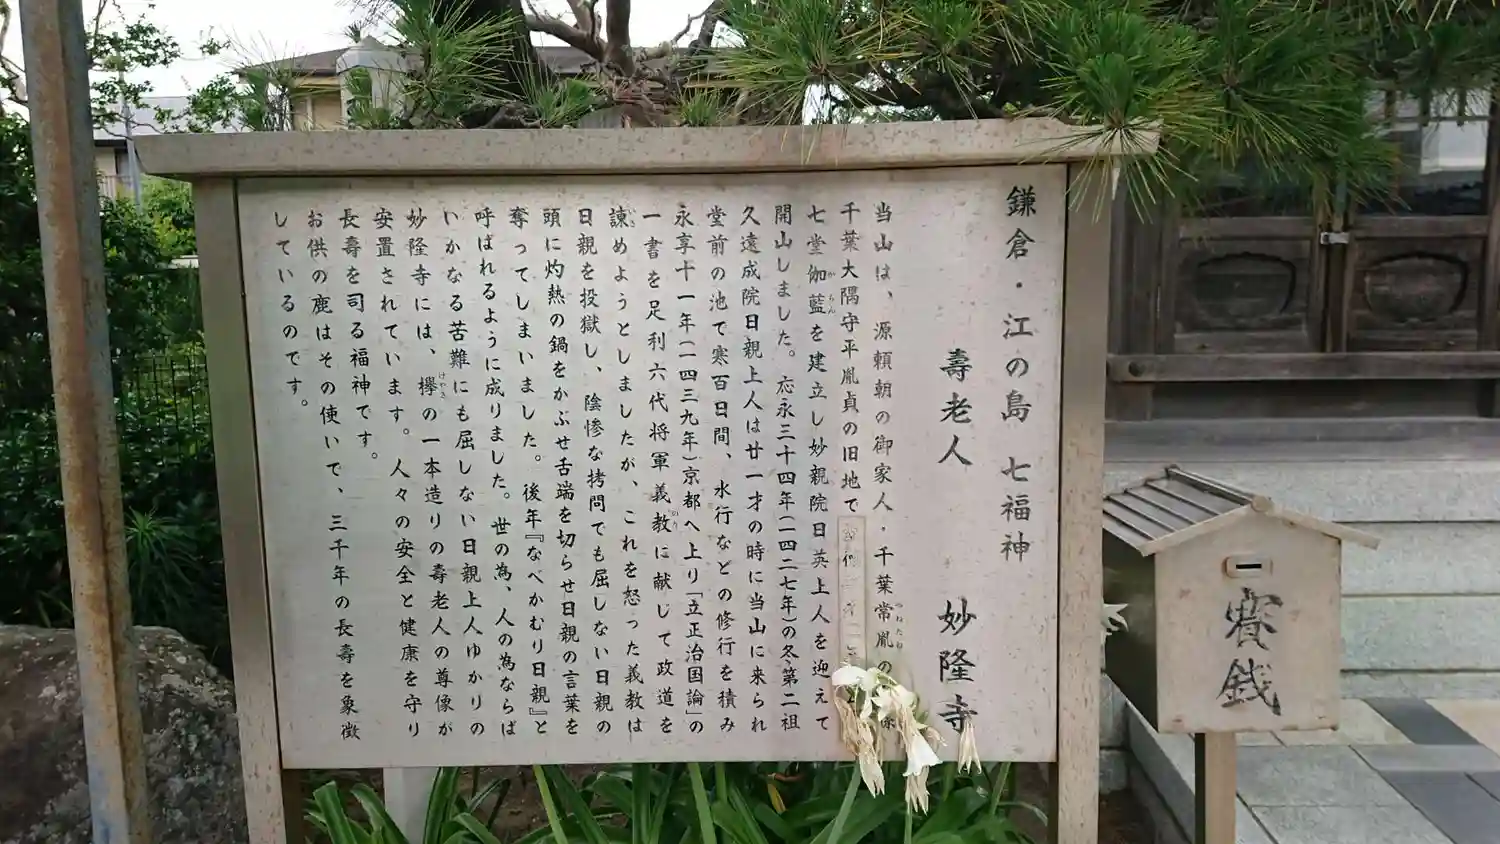 鎌倉・江の島 七福神
壽老人 妙隆寺
当山は、源頼朝の御家人・千葉常胤の
つねたね
千葉大隅守平胤貞の旧地で
七堂伽藍を建立し妙親院日英上人を迎えて
がらん
開山しました。応永三十四年(一四二七年)の冬第二祖
久遠成院日親上人は廿一才の時に当山に来られ
堂前の池で寒百日間、水行などの修行を積み
永享十一年(一四三九年)京都へ上り「立正治国論」の
一書を足利六代将軍義教に献じて政道を
のり
諌めようとしましたが、これを怒った義教は
いさ
日親を投獄し、陰惨な拷問でも屈しない日親の
頭に灼熱の鍋をかぶせ舌端を切らせ日親の言葉を
奪ってしまいました。後年『なべかむり日親』と
呼ばれるように成りました。世の為、人の為ならば
いかなる苦難にも屈しない日親上人ゆかりの
妙隆寺には、欅の一本造りの壽老人の尊像が
けやき
安置されています。人々の安全と健康を守り
長壽を司る福神です。
お供の鹿はその使いで、三千年の長壽を象徴
しているのです。
賽銭